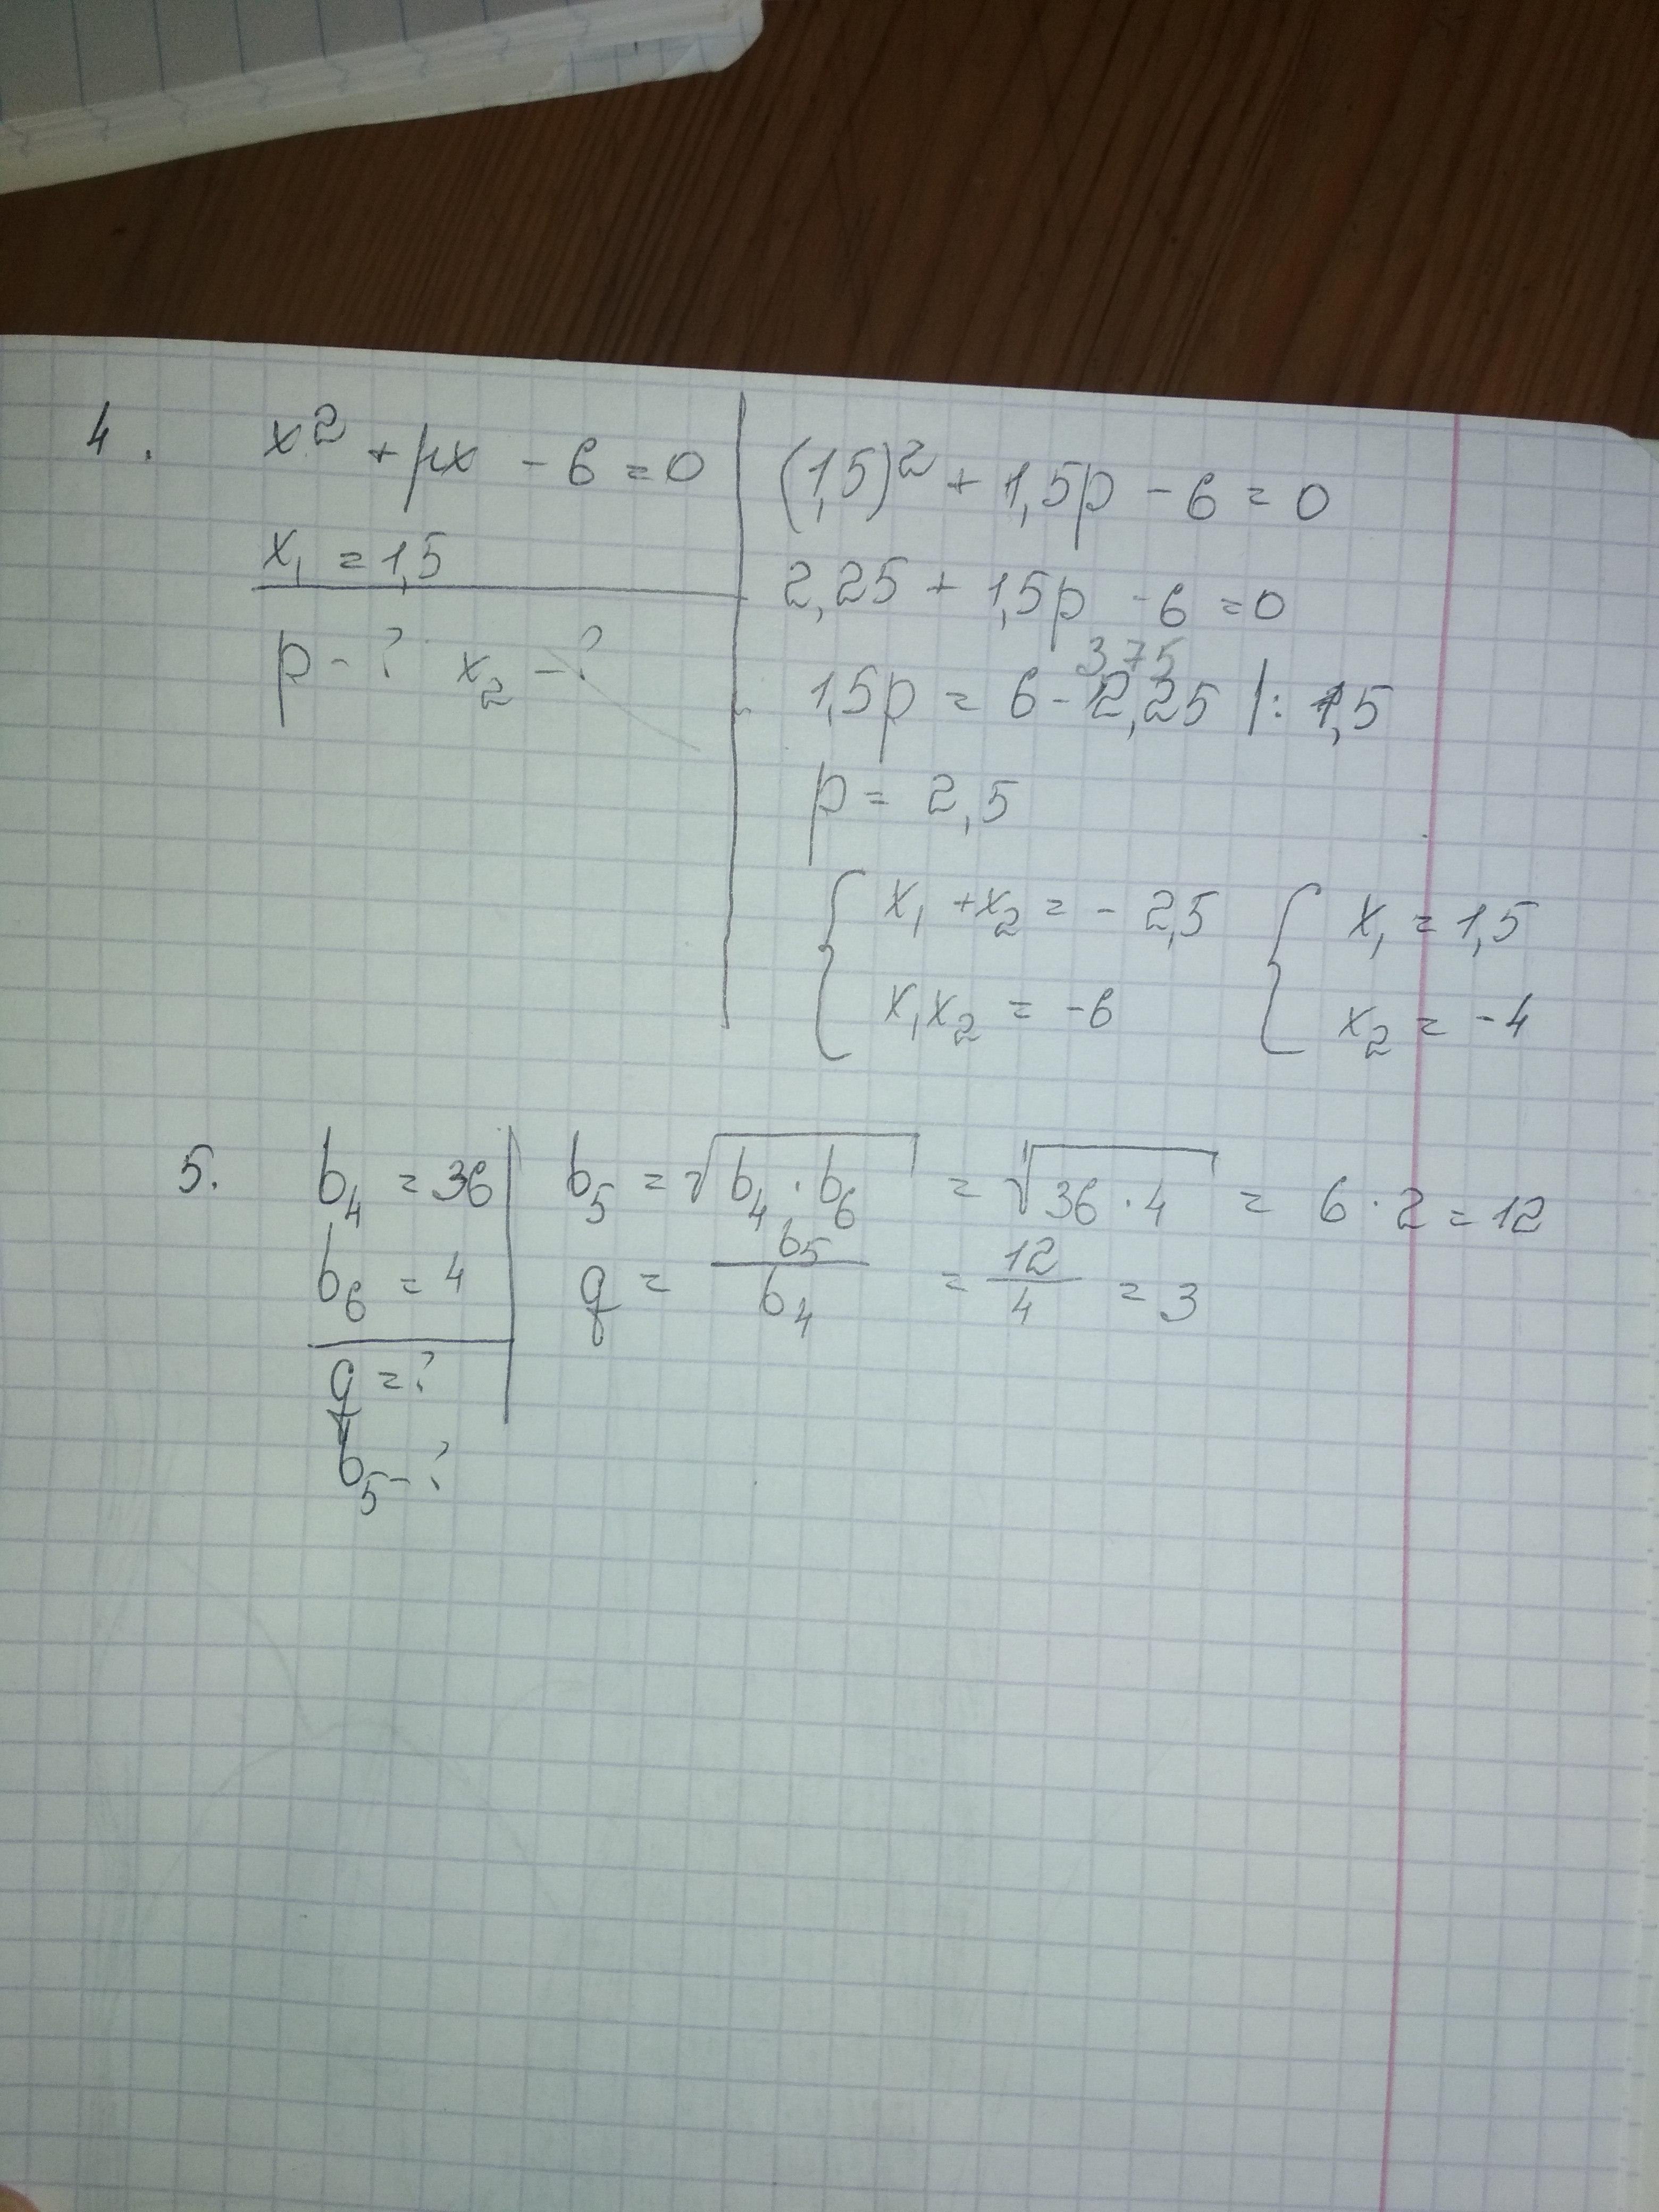 4. x² + px - 6 = 0
x₁ = 1,5
p - ? x₂ - ?
(1,5)² + 1,5p - 6 = 0
2,25 + 1,5p - 6 = 0
375
1,5p = 6 - 2,25 |: 1,5
p = 2,5
x₁ + x₂ = - 2,5
x₁x₂ = -6
x₁ = 1,5
x₂ = -4
5. b₄ = 36
b₆ = 4
q = ?
b₅ - ?
b₅ = √b₄ · b₆ = √36 · 4 = 6 · 2 = 12
q = b₅/b₄ = 12/4 = 3